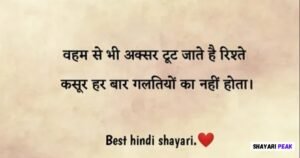 वहम से भी अक्सर टूट जाते है रिश्ते
कसूर हर बार गलतियों का नहीं होता।
Best hindi shayari.❤️
SHAYARI PEAK